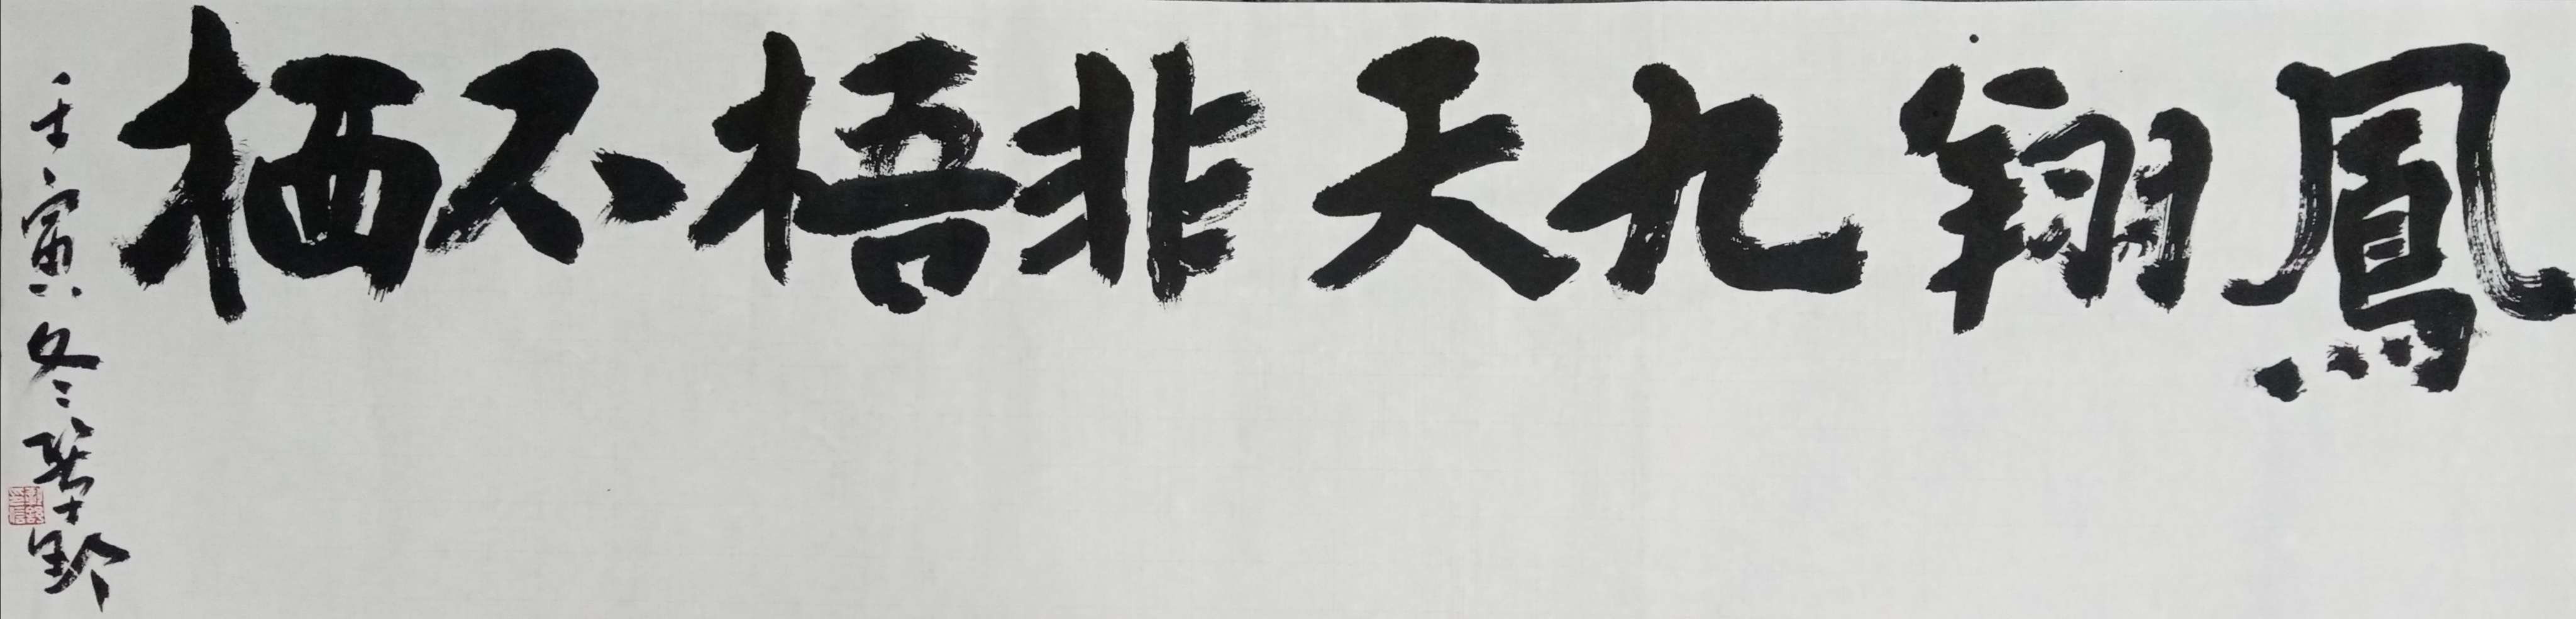 鳳翔九天非梧不栖
壬寅冬
野